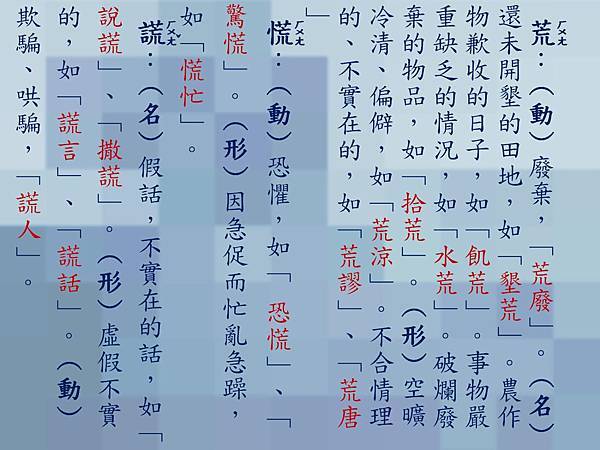 荒ㄏㄨㄤ：（動）廢棄，「荒廢」。（名）
還未開墾的田地，如「墾荒」。農作
物歉收的日子，如「飢荒」。事物嚴
重缺乏的情況，如「水荒」。破爛廢
棄的物品，如「拾荒」。（形）空曠
冷清、偏僻，如「荒涼」。不合情理
的、不實在的，如「荒謬」、「荒唐
」
慌ㄏㄨㄤ：（動）恐懼，如「恐慌」、「
驚慌」。（形）因急促而忙亂急躁，
如「慌忙」。
謊ㄏㄨㄤˇ：（名）假話，不實在的話，如「
說謊」、「撒謊」。（形）虛假不實
的，如「謊言」、「謊話」。（動）
欺騙、哄騙，「謊人」。